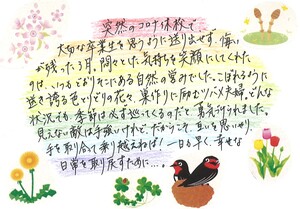 突然のコロナ休校で
大切な卒業生を思うように送り出せず、悔い
が残った3月。悶々とした気持ちを笑顔にしてくれた
のは、いつもどおりそこにある自然の営みでした。こぼれるように
咲き誇る色とりどりの花々、巣作りに励むツバメ夫婦。どんな
状況でも、季節は必ず巡ってくるのだと、勇気づけられました。
見えない敵は手強いけれど、だからこそ、互いを思いやり、
手を取り合って乗り越えねば! 一日も早く、幸せな
日常を取り戻すために…。